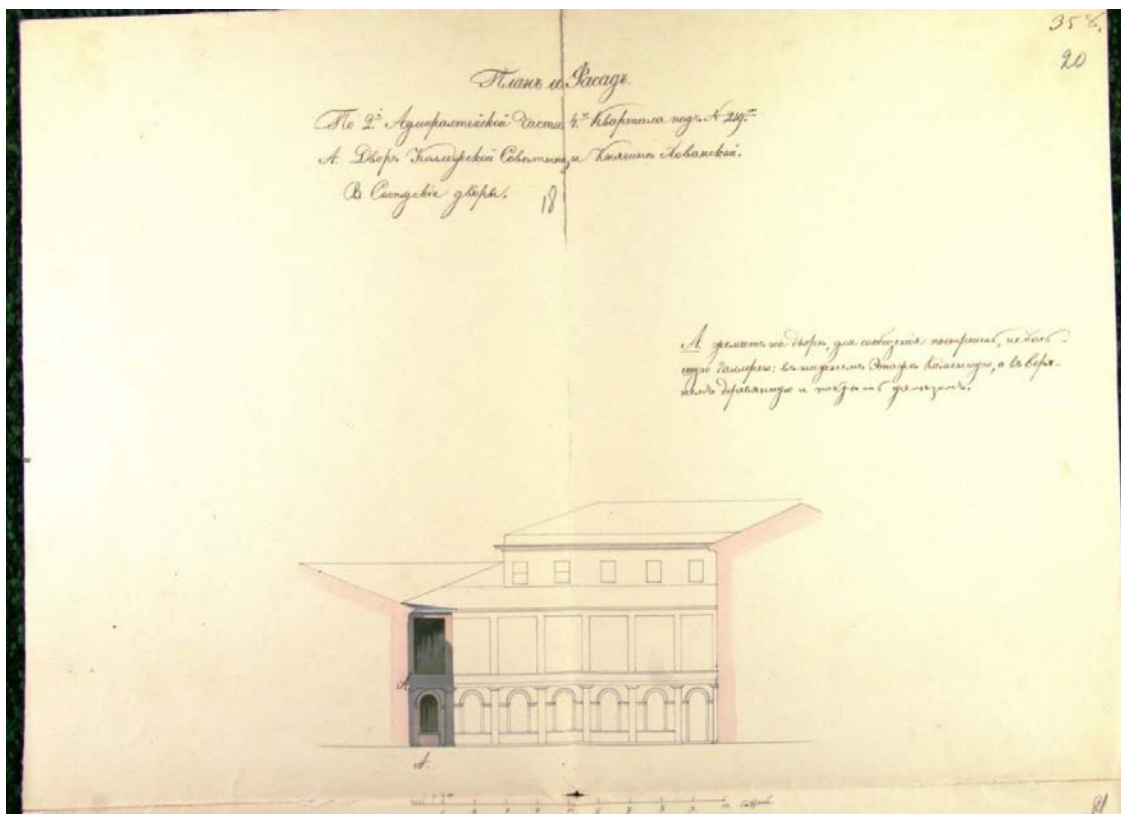 358.
20
Планъ и Фасадъ.
По 2й Адмиралтейской части 4го Квартала подъ N 219мъ
А. Дворъ Совѣтницы Княгини Хованской.
В Сосѣдніе дворы.
18
А. желаетъ на дворѣ, для сообщенія построить, неболь-
шую галлерею: въ нижнемъ Этажѣ Каменную, а въ верх-
немъ деревянную и покрыть желѣзомъ.
А.
А.
саженъ